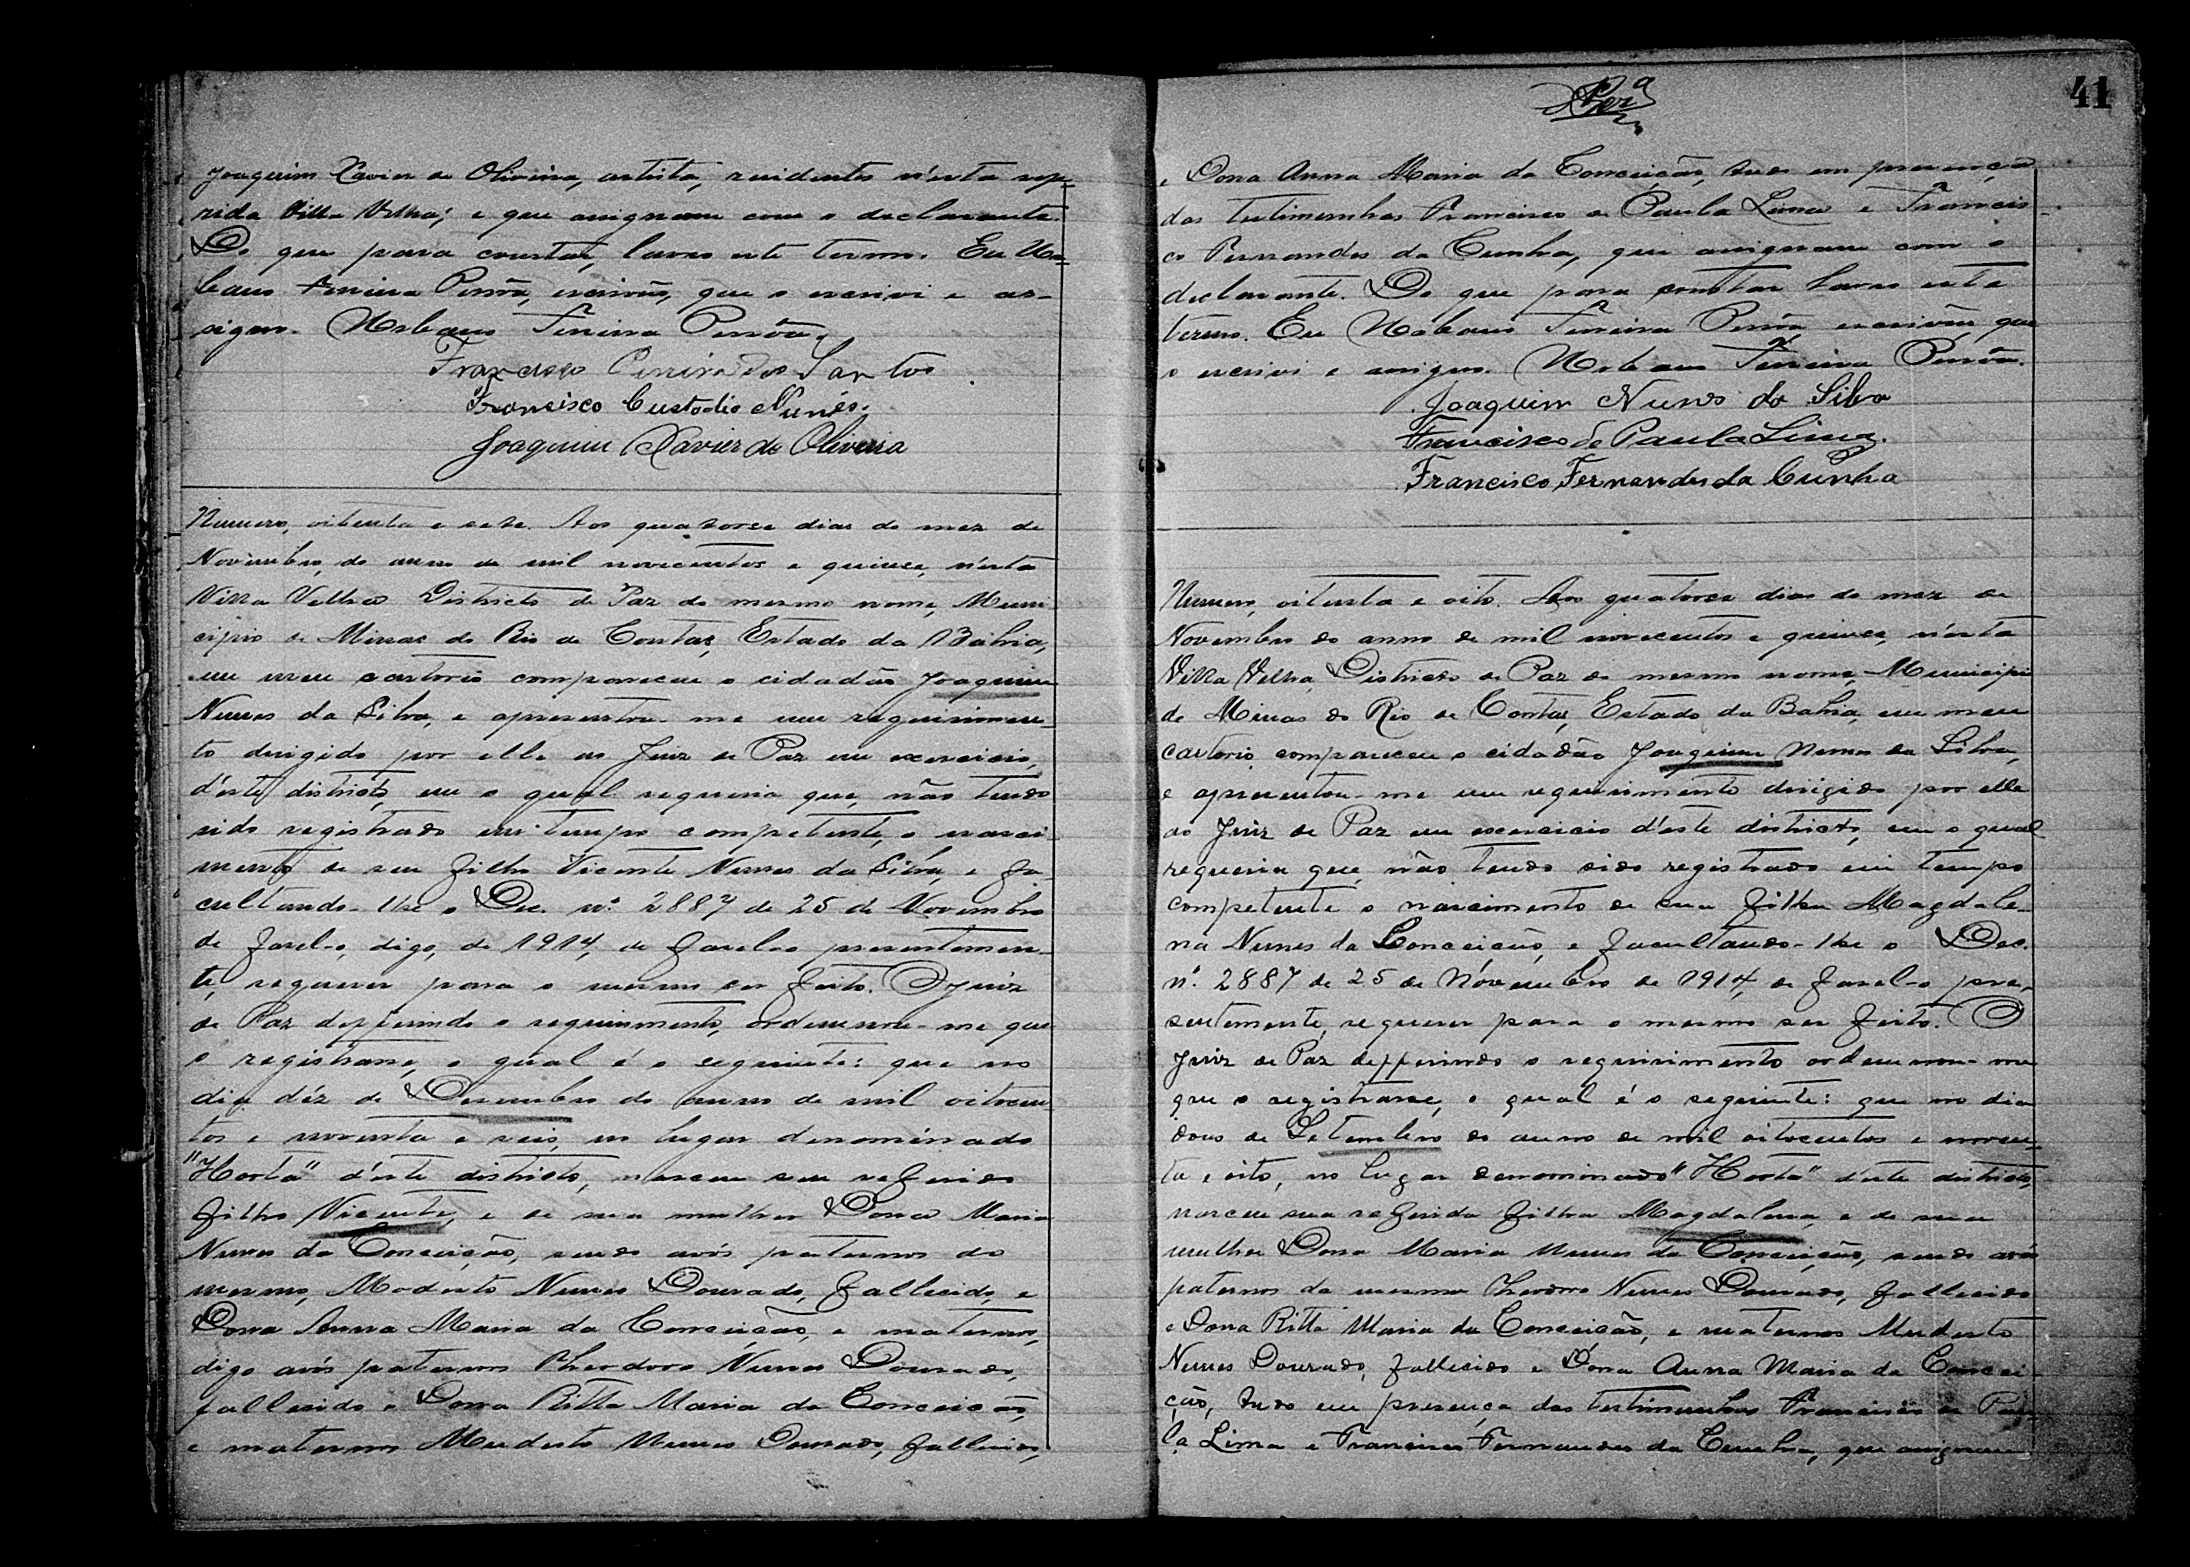 Joaquim Xavier de Oliveira, artista, residentes n'esta refe-
rida Villa Velha; e que assignam com o declarante.
Do que para constar, lavro este termo. Eu Ur-
bano Pereira Pessôa, escrivão, que o escrevi e as-
signo. Urbano Pereira Pessôa.
Francisco Pereira dos Santos
Francisco Custodio Nunes.
Joaquim Xavier de Oliveira
Numero, oitenta e sete. Aos quatorse dias do mez de
Novembro, do anno de mil novecentos e quinse, n'esta
Villa Velha Districto de Paz do mesmo nome, Muni
cipio de Minas do Rio de Contas, Estado da Bahia,
em meu cartorio compareceu o cidadão Joaquim
Nunes da Silva, e apresentou-me um requerimen-
to dirigido por elle ao Juiz de Paz em exercicio,
d'este districto, em o qual requeria que, não tendo
sido registrado em tempo competente, o nasci-
mento de seu filho Vicente Nunes da Silva, e fa-
cultando-lhe o Dec. nº 2887 de 25 de Novembro
de fasel-o, digo, de 1914, de fasel-o presentemen-
te, requerer para o mesmo ser feito. O Juiz
de Paz defferindo o requerimento, ordenou-me que
o registrasse, o qual é o seguinte: que no
dia déz de Desembro do anno de mil oitocen-
tos e noventa e seis, no lugar denominado
"Horta" d'este districto, nasceu seu referido
filho Vicente, e de sua mulher Dona Maria
Nunes da Conceição, sendo avós paternos do
mesmo, Modesto Nunes Dourado, fallecido, e
Dona Anna Maria da Conceição, e maternos,
digo avós paternos Theodoro Nunes Dourado,
fallecido e Dona Ritta Maria da Conceição,
e maternos Modesto Nunes Dourado, fallecido,
41
e Dona Anna Maria da Conceição, tudo em presença
das testimunhas Francisco de Paula Lima e Francis-
co Fernandes da Cunha, que assignam com o
declarante. Do que para constar lavro este
termo. Eu Urbano Pereira Pessôa, escrivão, que
o escrevi e assigno. Urbano Pereira Pessôa.
Joaquim Nunes da Silva
Francisco de Paula Lima.
Francisco Fernandes da Cunha
Numero, oitenta e oito. Aos quatorse dias do mez de
Novembro do anno de mil novecentos e quinse, n'esta
Villa Velha, Districto de Paz do mesmo nome, Municipio
de Minas do Rio de Contas, Estado da Bahia, em meu
cartorio compareceu o cidadão Joaquim Nunes da Silva,
e apresentou-me um requerimento dirigido por elle
ao Juiz de Paz em exercicio d'este districto, em o qual
requeria que, não tendo sido registrado em tempo
competente o nascimento de sua filha Magdale-
na Nunes da Conceição, e facultando-lhe o Dec.
nº. 2887 de 25 de Novembro de 1914, de fasel-o pre-
sentemente, requerer para o mesmo ser feito. O
Juiz de Paz defferindo o requerimento ordenou-me
que o registrasse, o qual é o seguinte: que no dia
dous de Setembro do anno de mil oitocentos e noven-
ta e oito, no lugar denominado "Horta" d'este districto,
nasceu sua referida filha Magdalena, e de sua
mulher Dona Maria Nunes da Conceição, sendo avós
paternos da mesma Theodoro Nunes Dourado, fallecido
e Dona Ritta Maria da Conceição, e maternos Modesto
Nunes Dourado, fallecido e Dona Anna Maria da Concei-
ção, tudo em presença das testimunhas Francisco de Pau-
la Lima e Francisco Fernandes da Cunha, que assignam